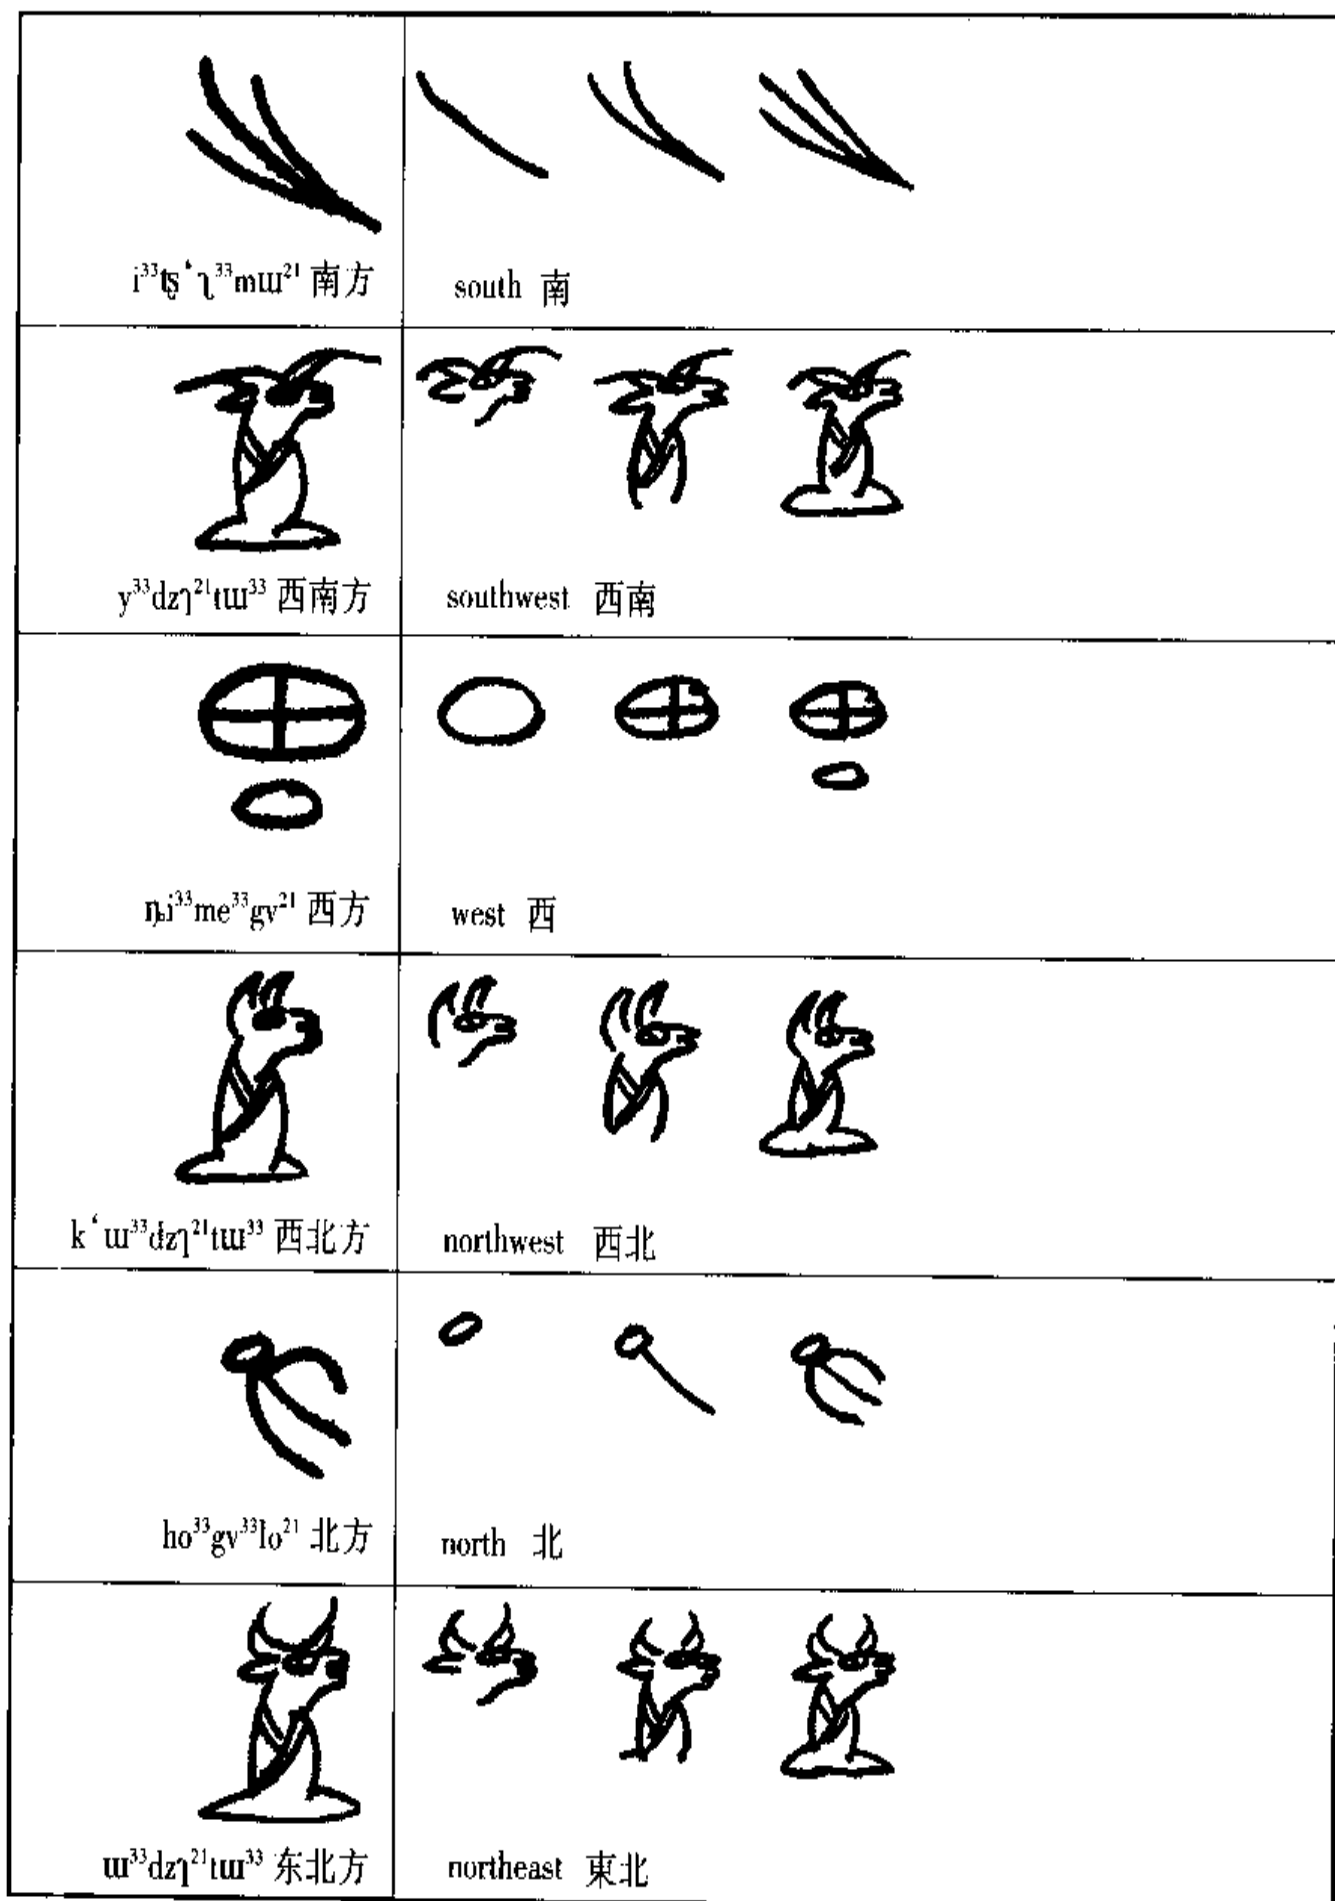 i³³tʂ‘ʅ³³mɯ²¹ 南方 south 南
y³³dzɿ²¹tɯ³³ 西南方 southwest 西南
ȵi³³me³³gv²¹ 西方 west 西
k‘ɯ³³dzɿ²¹tɯ³³ 西北方 northwest 西北
ho³³gv³³lo²¹ 北方 north 北
ɯ³³dzɿ²¹tɯ³³ 东北方 northeast 東北